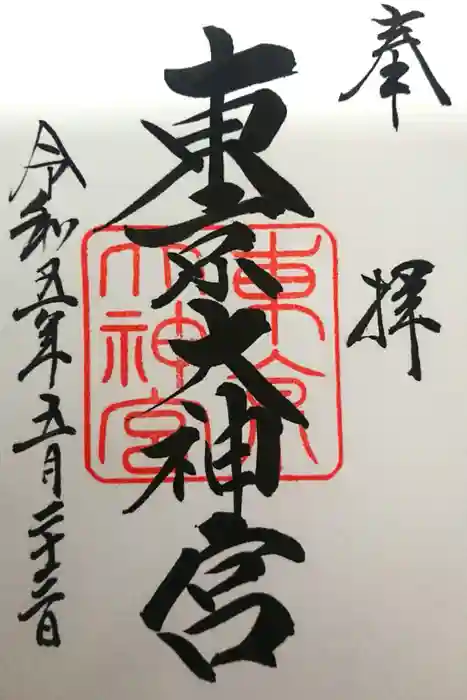 奉拝
東京大神宮
東京大神宮
令和五年五月二十二日